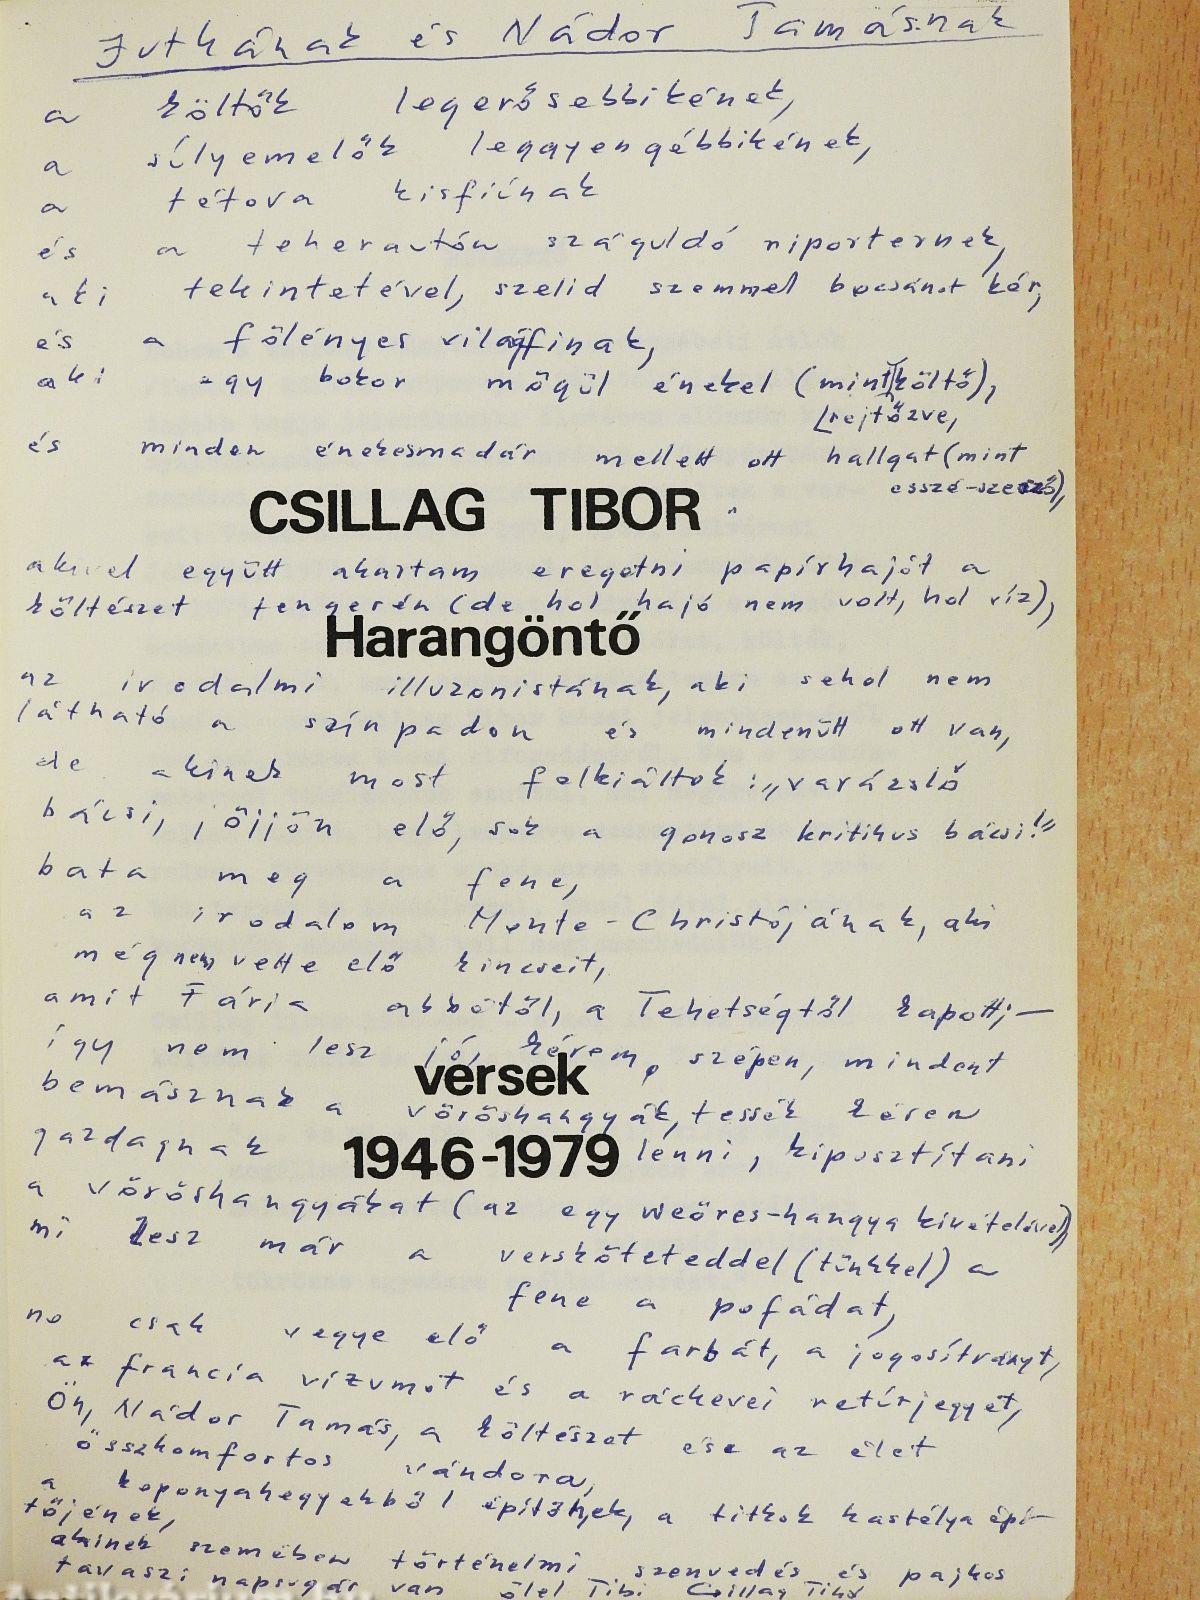 Jutkának és Nádor Tamásnak
a költők legerősebbikének,
a súlyemelők leggyengébbikének,
a tétova kisfiúnak
és a teherautón száguldó riporternek,
aki tekintetével, szelid szemmel bocsánatot kér,
és a fölényes világfinak,
aki egy bokor mögül énekel (mint költő),
rejtőzve,
és minden énekesmadár mellett ott hallgat (mint
esszé-szerző),
CSILLAG TIBOR
akivel együtt akartam eregetni papírhajót a
költészet tengerén (de hol hajó nem volt, hol víz),
Harangöntő
az irodalmi illuzonistának, aki sehol nem
látható a színpadon és mindenütt ott van,
de akinek most felkiáltok: „varázsló
bácsi, jöjjön elő, sok a gonosz kritikus bácsi!"
bata meg a fene,
az irodalom Monte-Christójának, aki
még nem vette elő kincseit,
amit Fária abbétól, a Tehetségtől kapott; —
így nem lesz jó, kérem szépen, mindent
versek
bemásznak a vöröshangyák, tessék kérem
gazdagnak lenni, kipusztítani
1946-1979
a vöröshangyákat (az egy Weöres-hangya kivételével)
mi lesz már a versköteteddel (tünkkel) a
fene a pofádat,
no csak vegye elő a farbát, a jogosítványt,
az francia vízumot és a ráckevei retúrjegyet,
Ön, Nádor Tamás, a költészet és az élet
összkomfortos vándora,
a koponyahegyekből a titkok kastélya épí-
tőjének,
akinek szemében történelmi szenvedés és pajkos
tavaszi napsugár van ölel Tibi Csillag Tibor